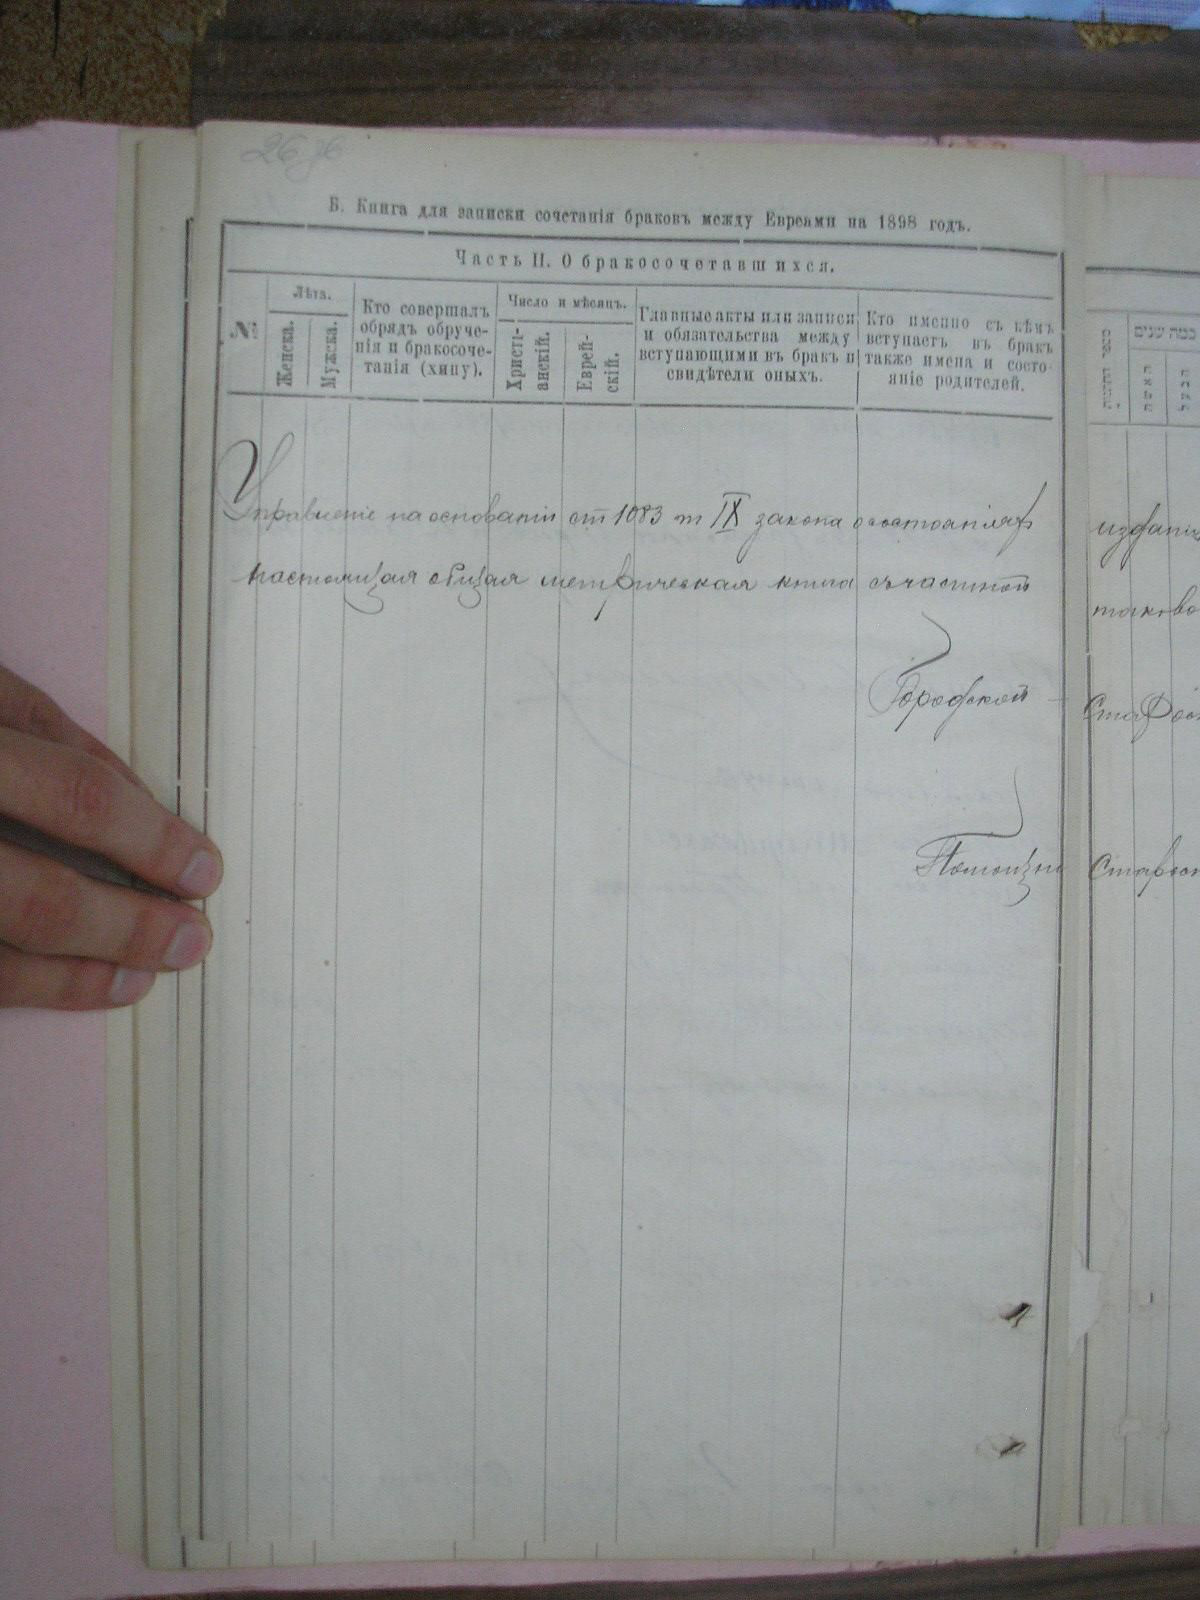 Б. Книга для записки сочетанія браковъ между Евреами на 1898 годъ.
Часть II. О бракосочетавшихся.
№
Лѣта.
Женска.
Мужска.
Кто совершалъ
обрядъ обруче-
нія и бракосоче-
танія (хипу).
Число и мѣсяцъ.
Христі-
анскій.
Еврей-
скій.
Главные акты или записи
и обязательства между
вступающими въ бракъ и
свидѣтели оныхъ.
Кто именно съ кѣмъ
вступаетъ въ бракъ
также имена и состо-
яніе родителей.
כמה שנים
האשה
הבעל
Управленіе на основаніи ст 1083 т IX закона о состояніях
настоящая общая метрическая книга съ частной
Городской
Помощн